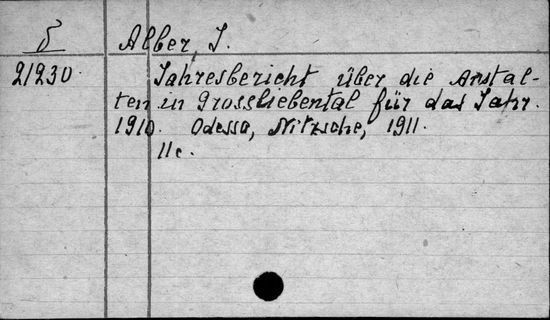 Б Alber, I.
21230 Jahresbericht über die Anstal-
ten in Grossliebental für das Jahr.
1910. Odessa, Nitzsche, 1911.
11c.